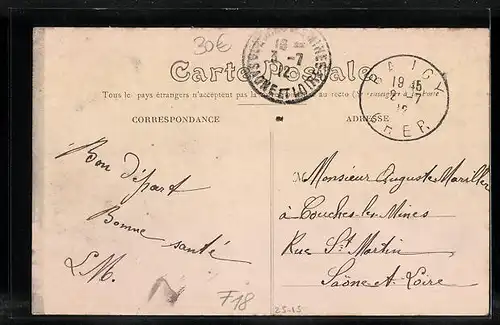 30€
Carte Postale
Tous les pays étrangers n'acceptent pas la au recto (Se renseigner à la Poste
CORRESPONDANCE
ADRESSE
MINES
3 -7
12
SAONE ET LOIRE
19 45
2 -7
12
Bon départ
Bonne santé
L.M.
M Monsieur Auguste Mariller
à Couches-les-Mines
Rue St Martin
Saône-et-Loire
F18
25-15